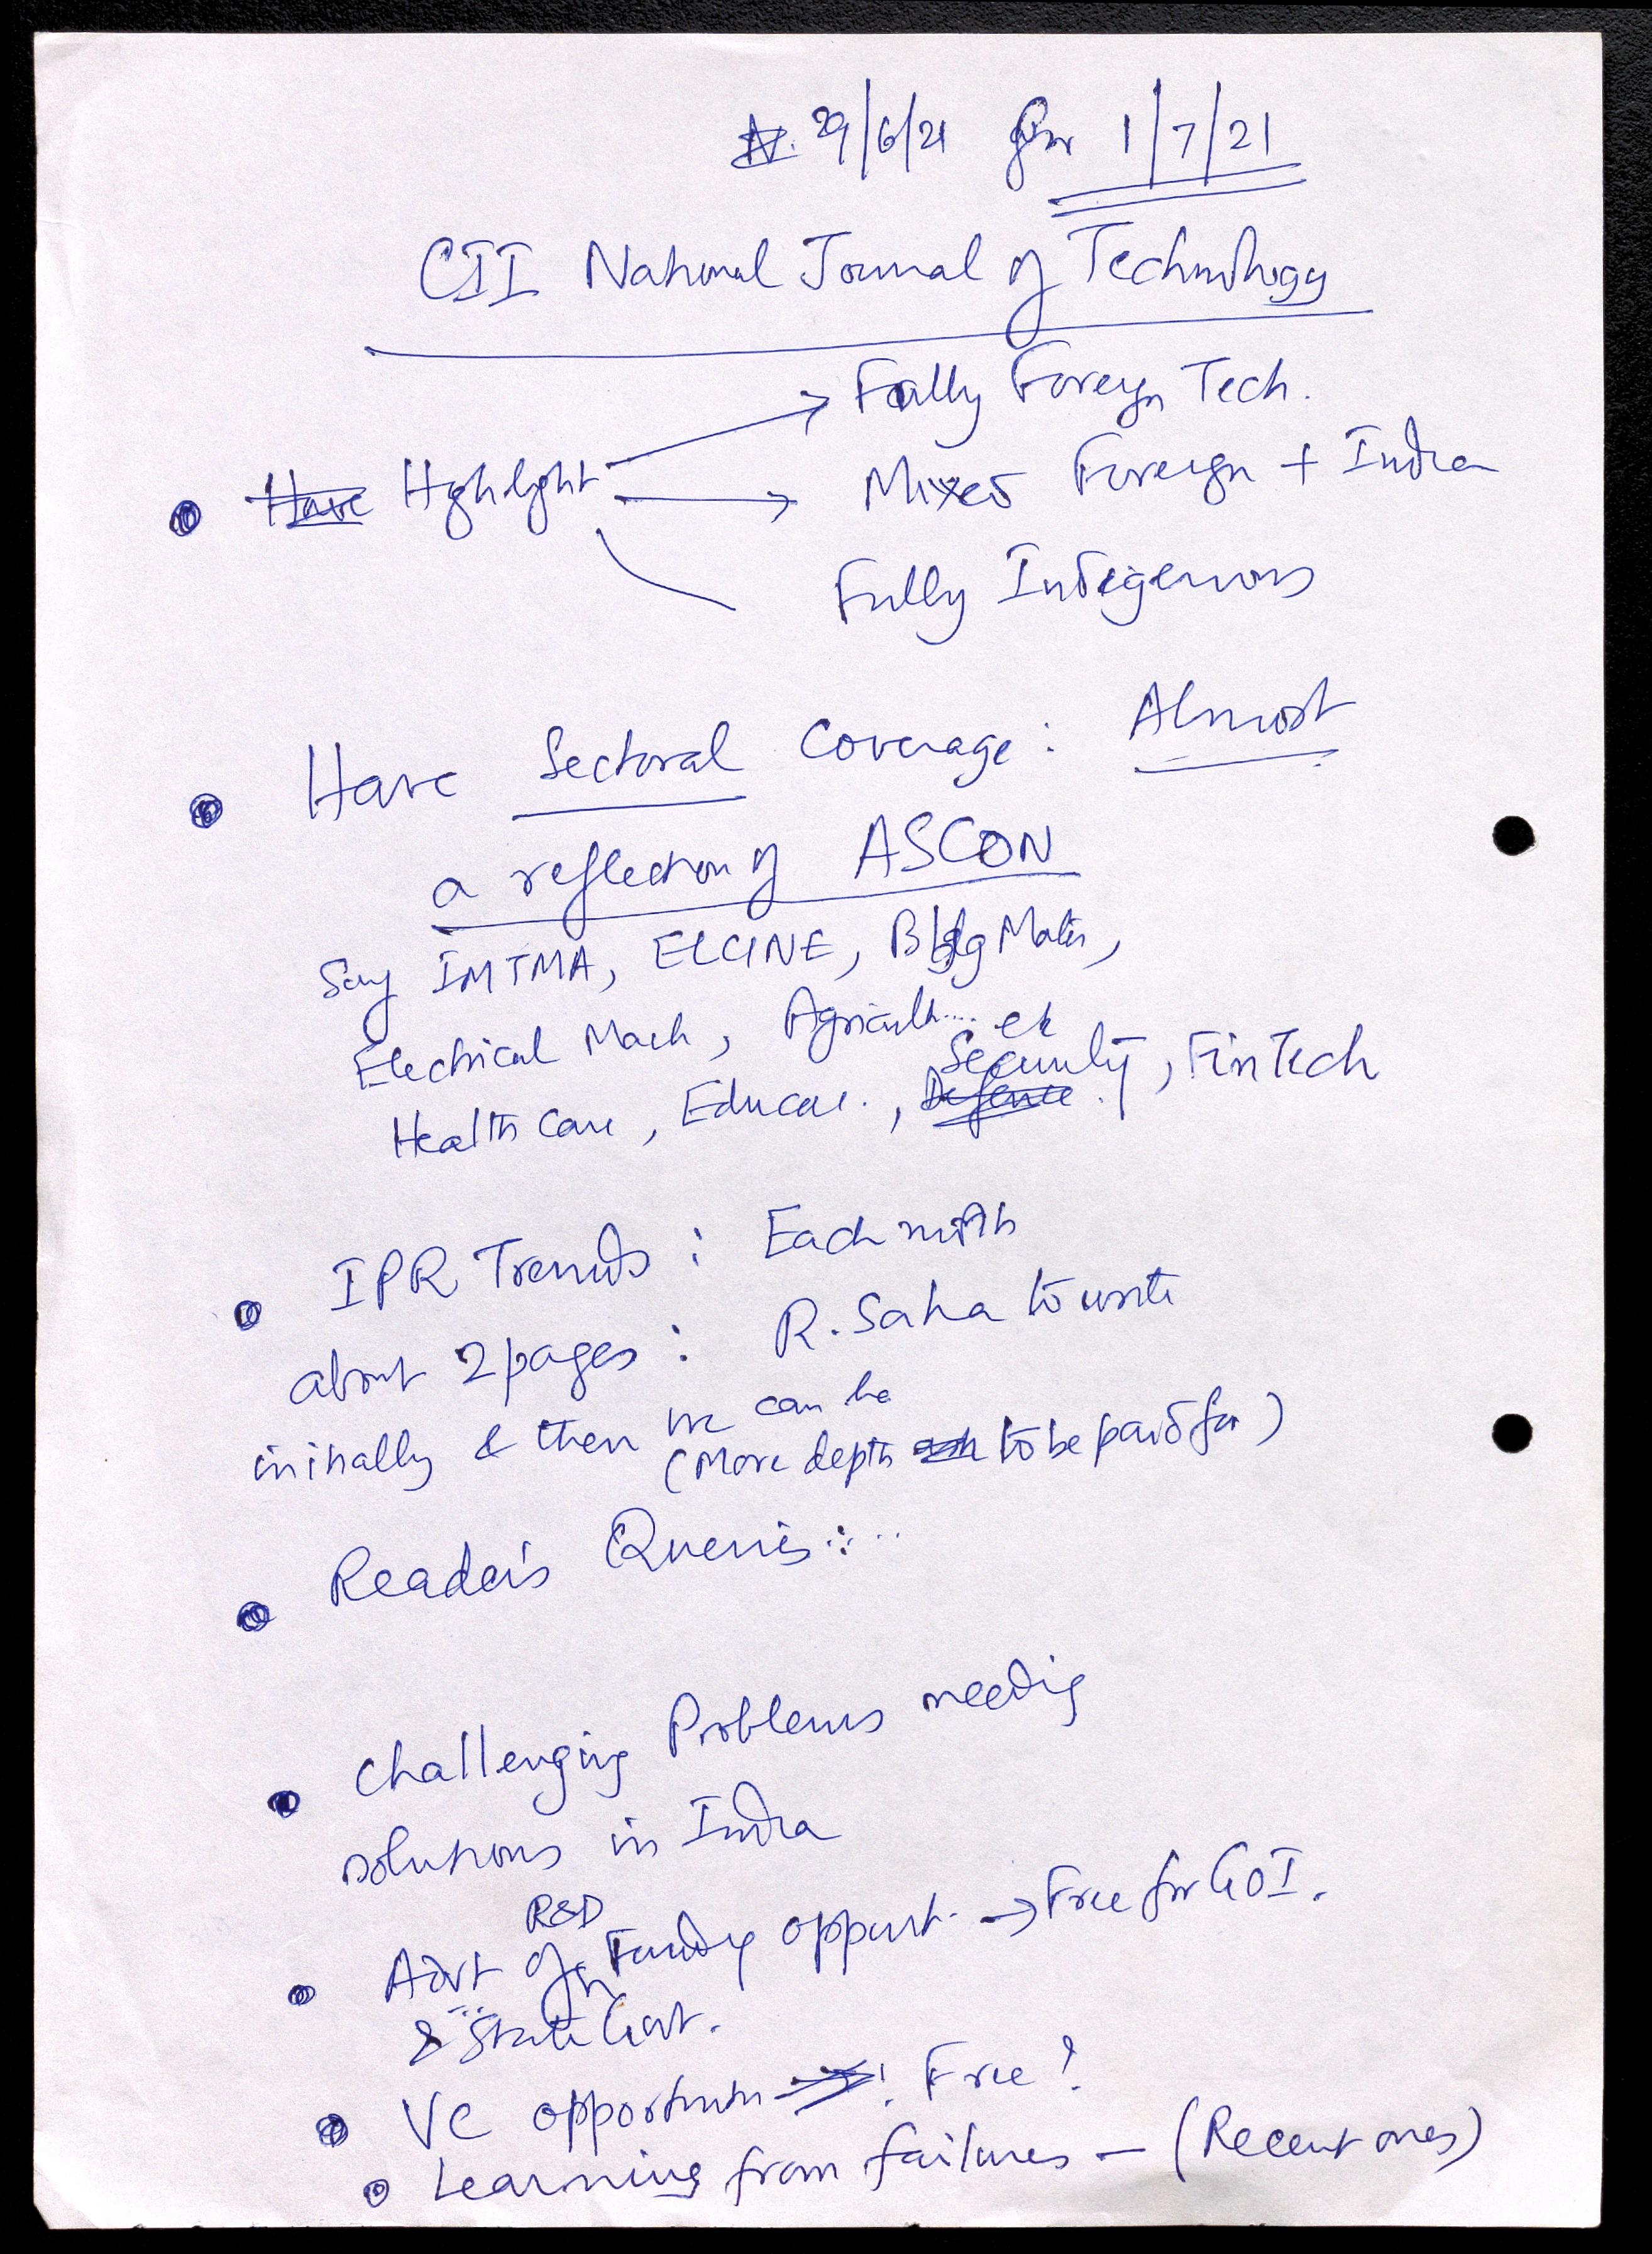 29/6/21 for 1/7/21
CII National Journal of Technology
Fully Foreign Tech.
Have Highlight
Mixed Foreign + India
Fully Indigenous
Have Sectoral Coverage : Almost
a reflection of ASCON
Say IMTMA, ELCINE, Bldg Matls,
Electrical Mach, Agricult.... etc
Health Care, Educat., Defence. Security, FinTech
IPR Trends : Each month
about 2 pages : R. Saha to write
initially & then we can be
(More depth to be paid for)
Reader's Queries :
Challenging Problems needing
solutions in India
R&D
Advt of Funding opport. → Free for GOI.
& State Govt.
VC opportunities Free?
Learning from failures — (Recent ones)